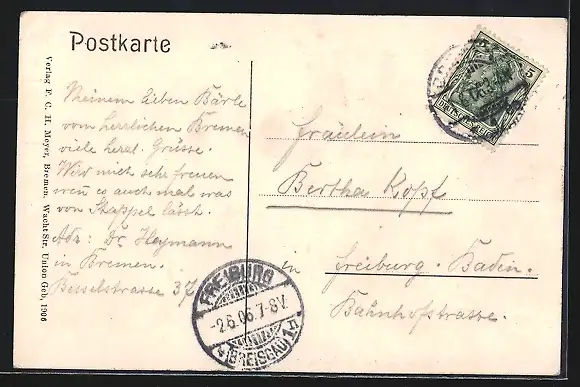 Postkarte
Verlag F. C. H. Meyer, Bremen, Wacht Str. Union Geb, 1906
Meinem lieben Bärle
vom herrlichen Bremen
viele herzl. Grüsse.
Wird mich sehr freuen
wen̅ es auch mal was
von Stappel lässt.
Adr: Dr Heymann
in Bremen.
Besselstrasse 37
5
5
DEUTSCHES REICH
Fräulein
Bertha Kopf
in Freiburg. Baden.
Bahnhofstrasse.
FREIBURG
-2.6.06.7-8V.
(BREISGAU)